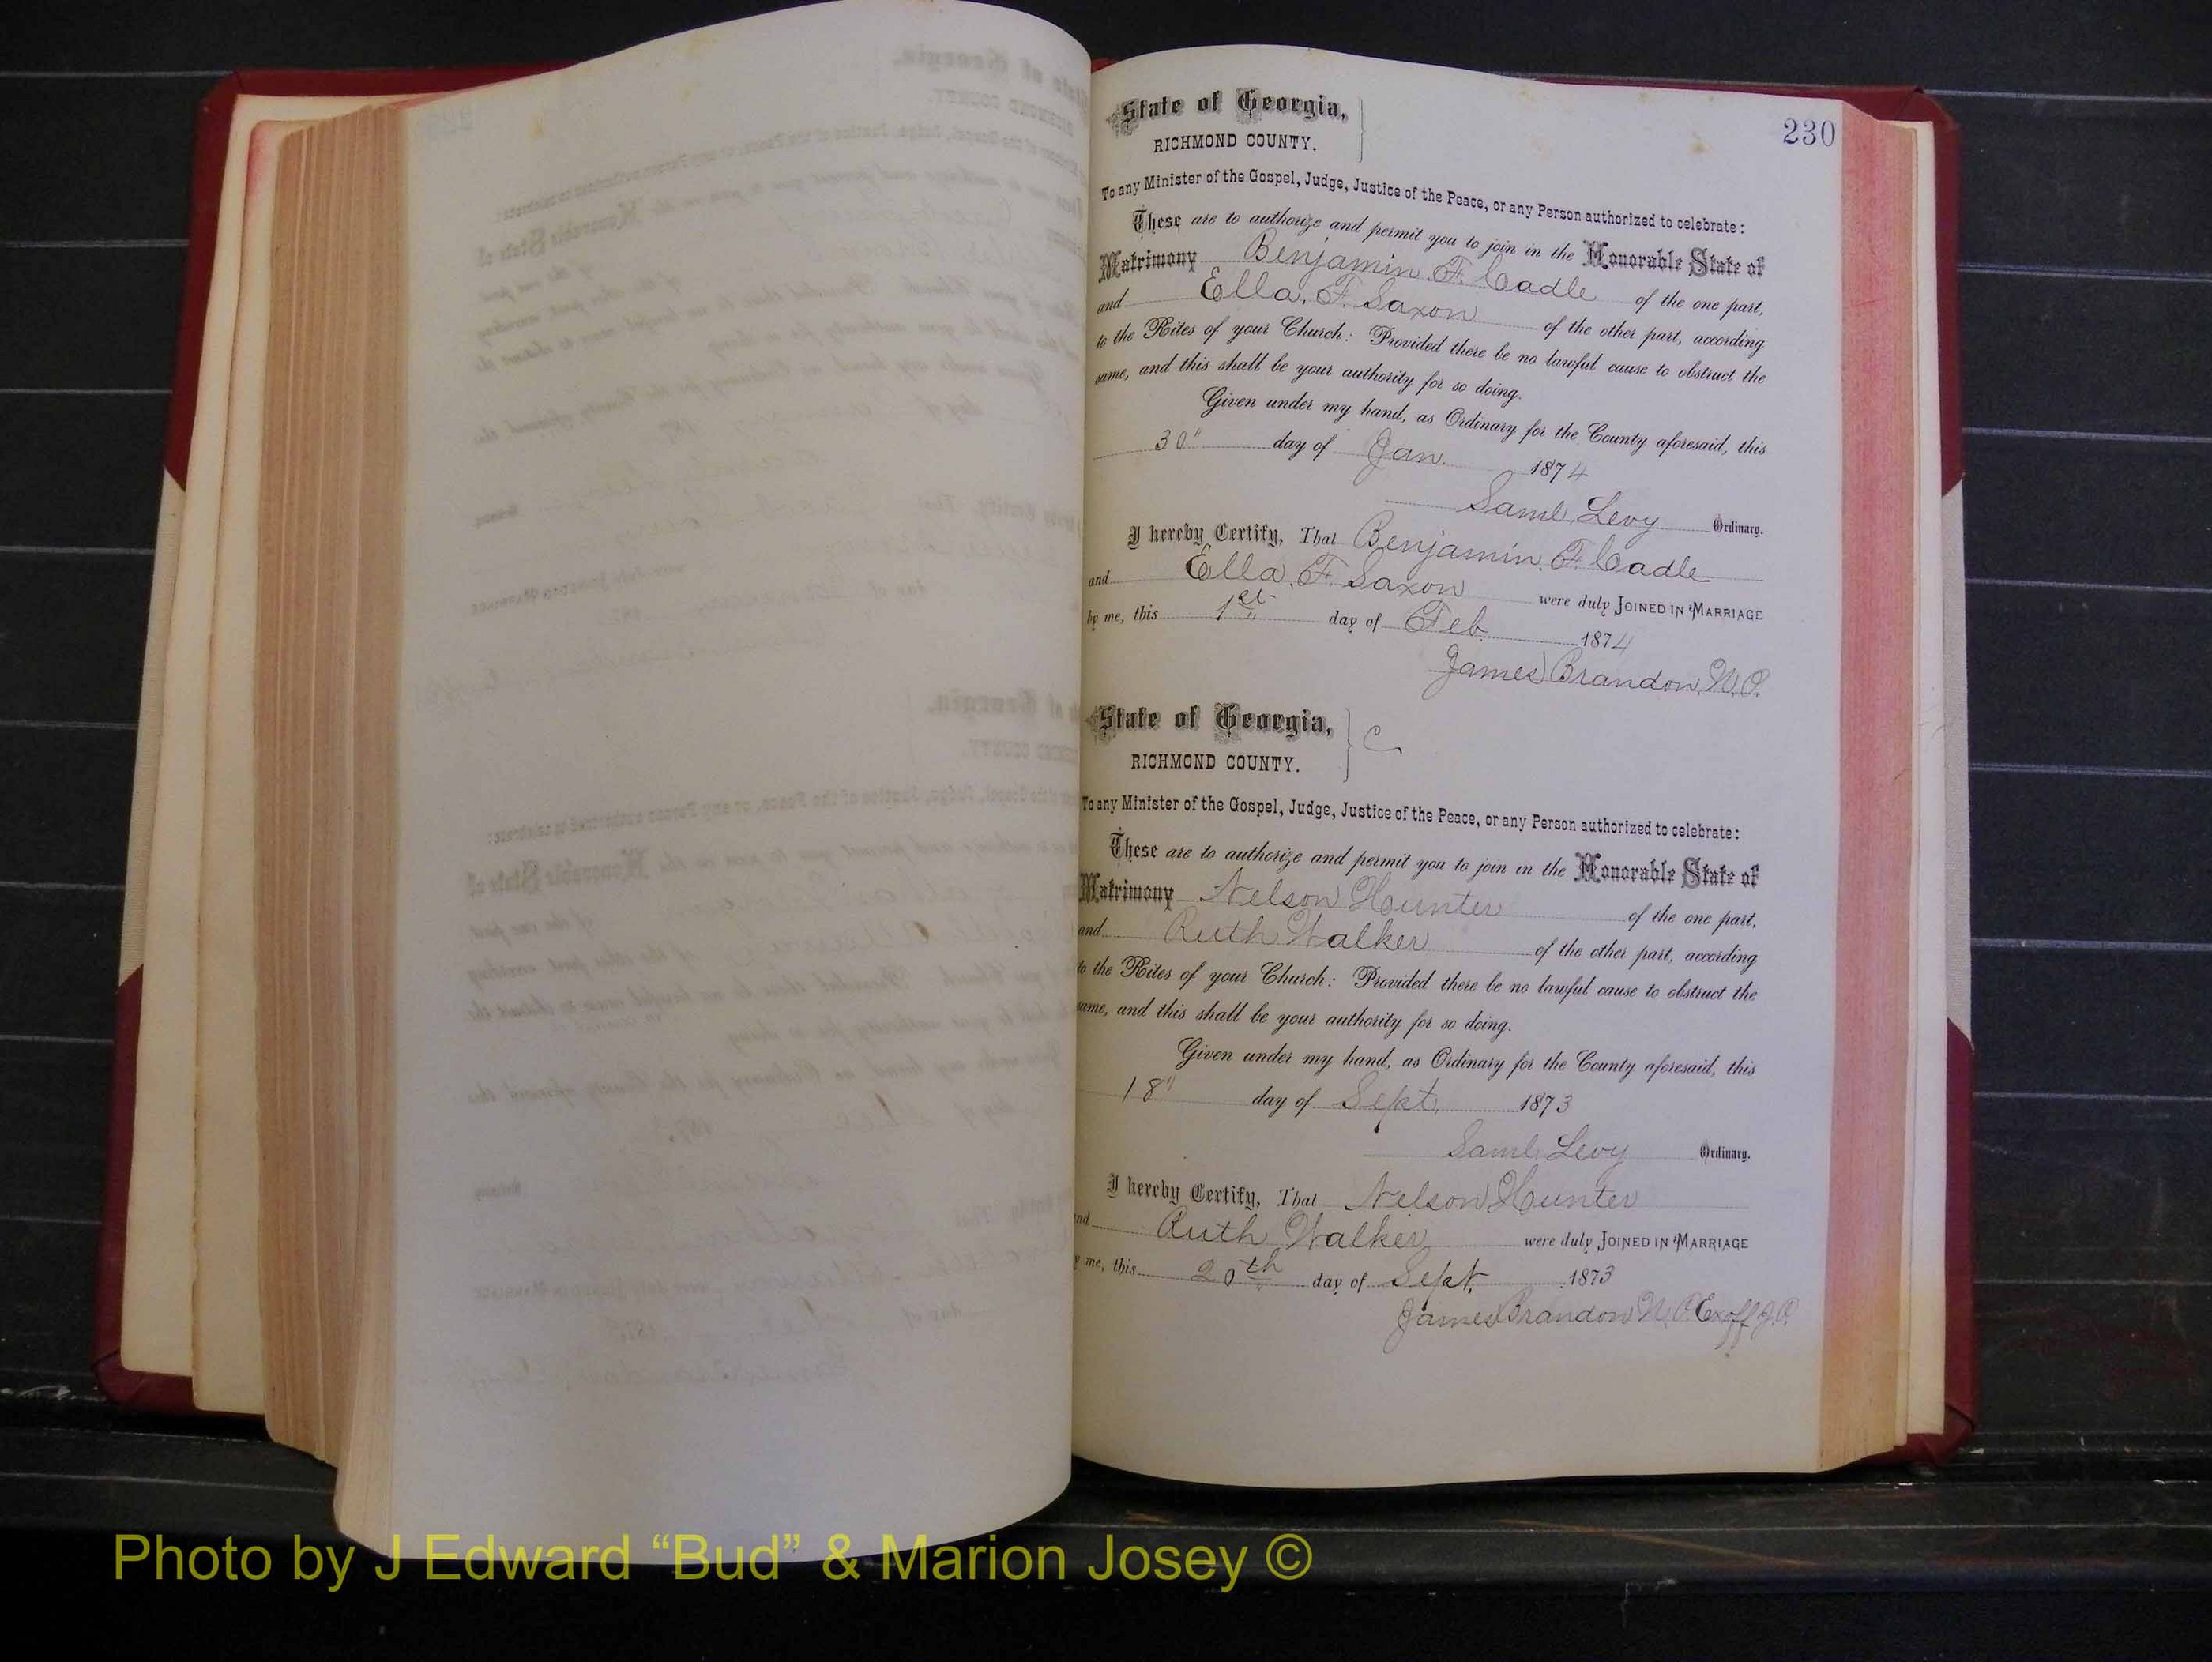 230
State of Georgia,
RICHMOND COUNTY.
To any Minister of the Gospel, Judge, Justice of the Peace, or any Person authorized to celebrate:
These are to authorize and permit you to join in the Honorable State of
Matrimony Benjamin F. Cadle of the one part,
and Ella, F. Saxon of the other part, according
to the Rites of your Church: Provided there be no lawful cause to obstruct the
same, and this shall be your authority for so doing.
Given under my hand, as Ordinary for the County aforesaid, this
30" day of Jan. 1874
Saml. Levy Ordinary.
I hereby Certify, That Benjamin. F. Cadle
and Ella, F. Saxon were duly JOINED IN MARRIAGE
by me, this 1st day of Feb 1874
James Brandon, N.P.
State of Georgia, C
RICHMOND COUNTY.
To any Minister of the Gospel, Judge, Justice of the Peace, or any Person authorized to celebrate:
These are to authorize and permit you to join in the Honorable State of
Matrimony Nelson Hunter of the one part,
and Ruth Walker of the other part, according
to the Rites of your Church: Provided there be no lawful cause to obstruct the
same, and this shall be your authority for so doing.
Given under my hand, as Ordinary for the County aforesaid, this
18" day of Sept. 1873
Saml. Levy Ordinary.
I hereby Certify, That Nelson Hunter
and Ruth Walker were duly JOINED IN MARRIAGE
me, this 20th day of Sept. 1873
James Brandon N.P. Exoff J.P.
Photo by J Edward “Bud” & Marion Josey ©